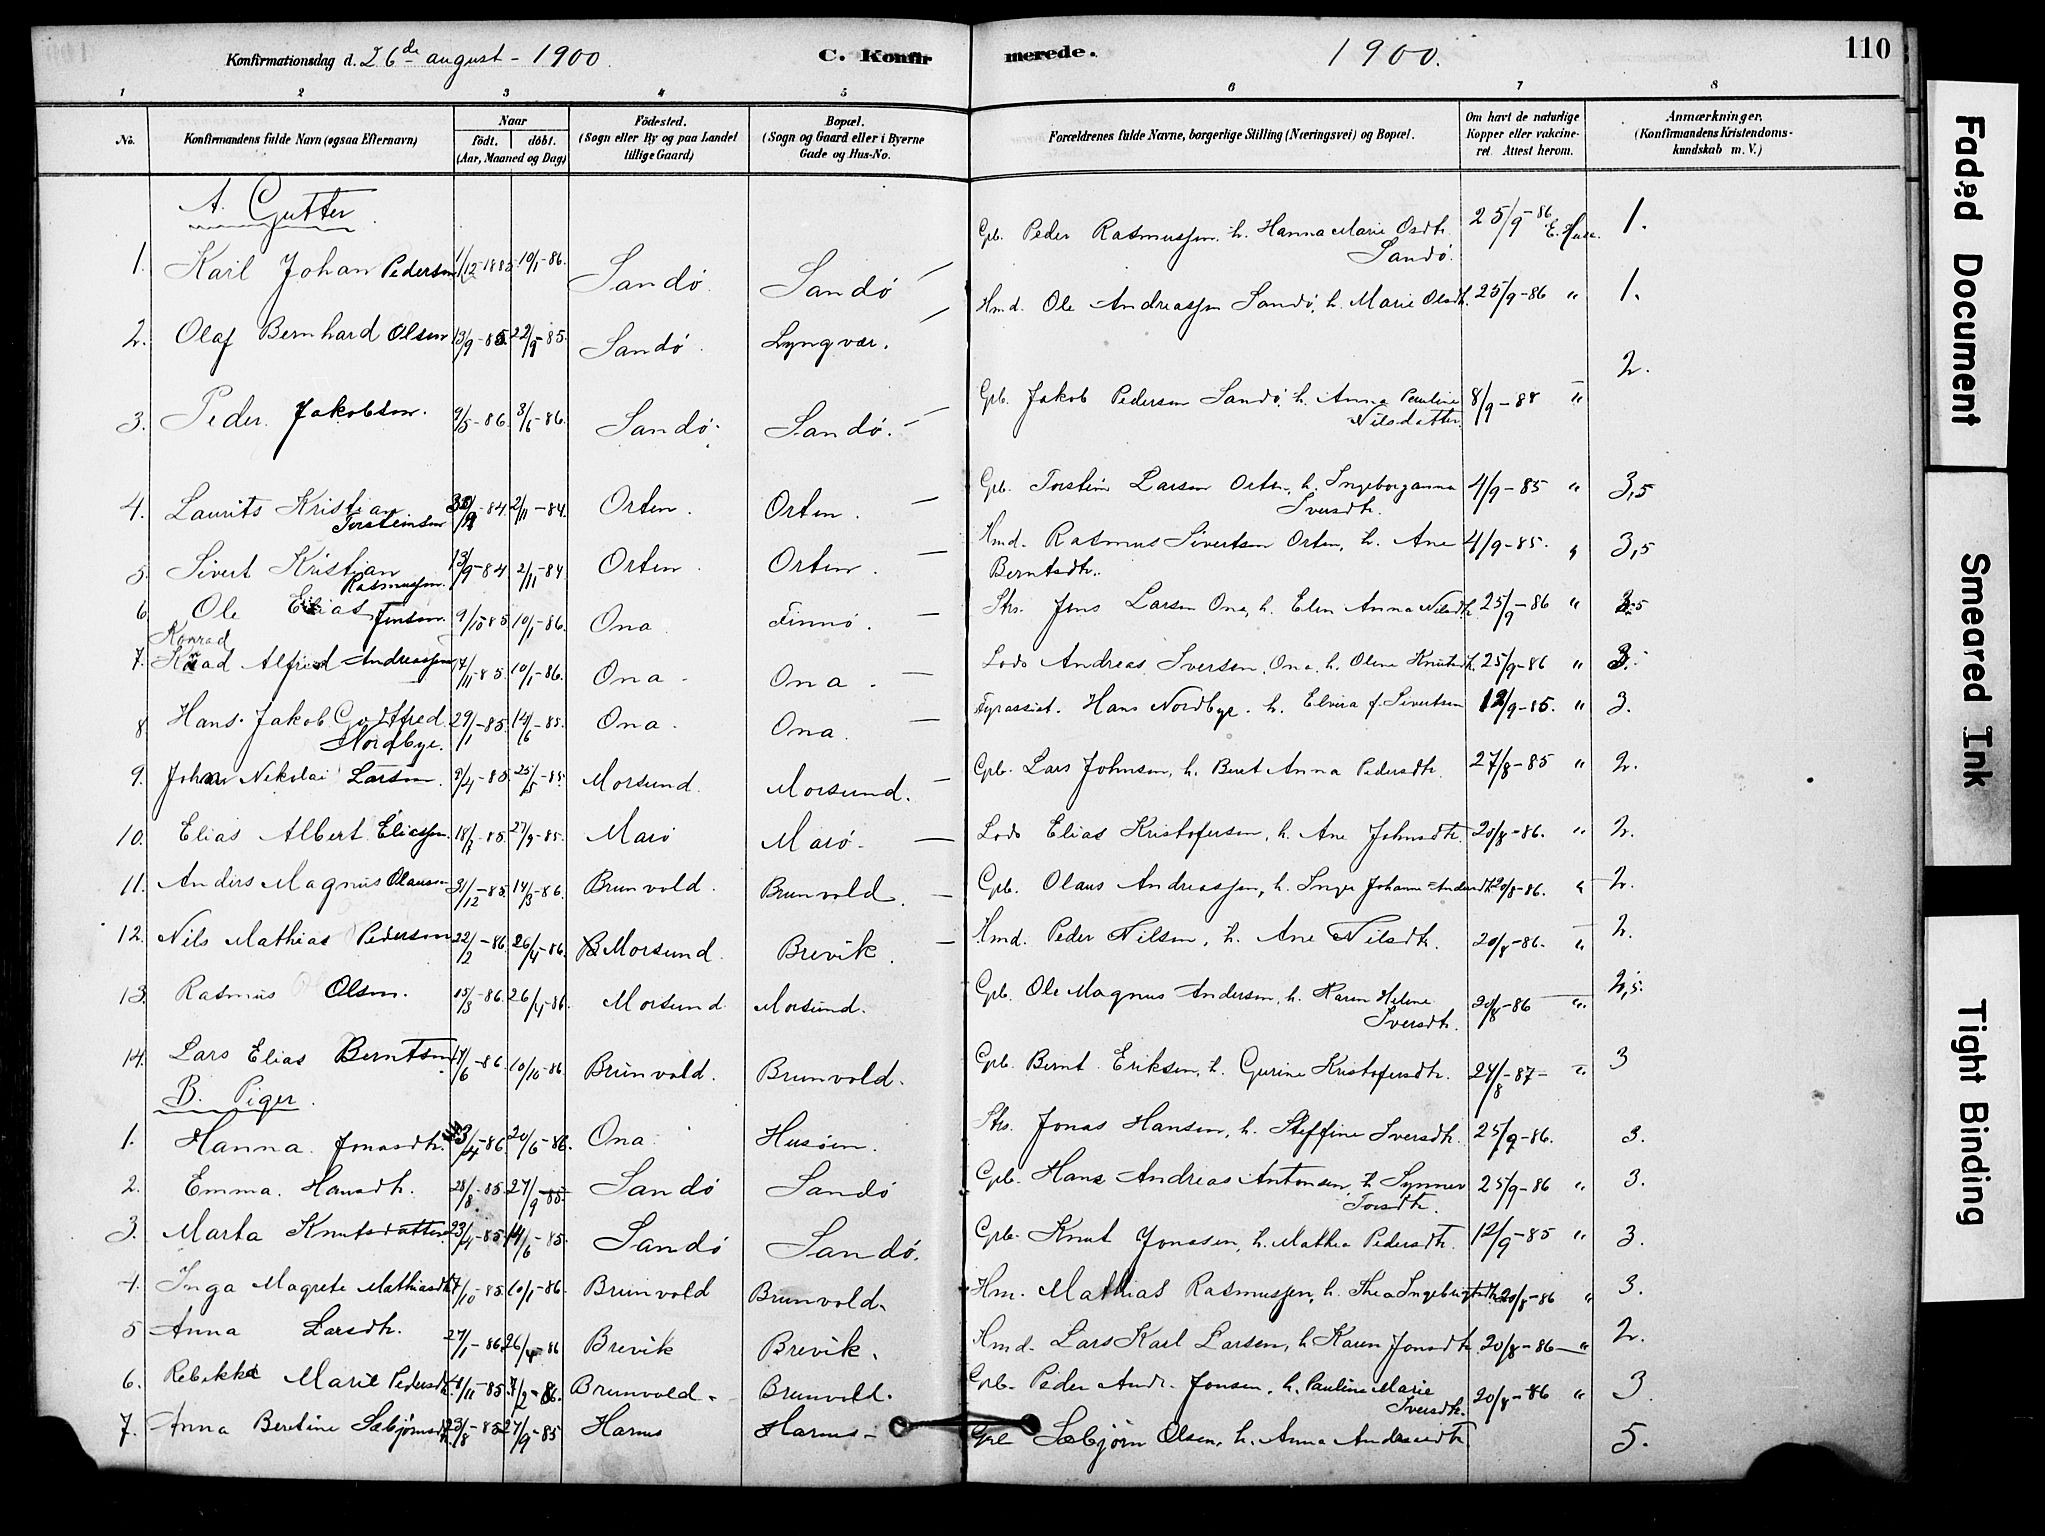 Konfirmationsdag d. 26de august - 1900. C. Konfirmerede. 1900. 110
1 2 3 4 5 6 7 8
No. Konfirmandens fulde Navn (ogsaa Efternavn) Naar født. døbt. (Aar, Maaned og Dag) Fødested. (Sogn eller By og paa Landet tillige Gaard) Bopæl. (Sogn og Gaard eller i Byerne Gade og Hus-No. Forældrenes fulde Navne, borgerlige Stilling (Næringsvei) og Bopæl. Om havt de naturlige Kopper eller vakcineret. Attest herom. Anmærkninger, (Konfirmandens Kristendomskundskab m. V.)
A. Gutter
1. Karl Johan Pedersen 1/12-1885. 10/1-86. Sandø. Sandø Gb. Peder Rasmussen, h. Hanna Marie Osdtr. Sandø. 25/9-86 1.
2. Olaf Bernhard Olsen 13/9-85. 22/9-85. Sandø. Lyngvær. Hmd. Ole Andreassen Sandø, h. Marie Olsdtr. 25/9-86 " 1.
3. Peder Jakobsen. 9/5-86. 3/6-86. Sandø. Sandø. Gb. Jakob Pedersen Sandø, h. Anna Pauline Nilsdatter. 8/9-88 " 2.
4. Laurits Kristian Torsteinsen -84. 2/11-84. Orten. Orten. Gb. Torstein Larsen Orten, h. Ingeborganna Iversdtr. 4/9-85 " 3,5
5. Sivert Kristian Rasmussen. 13/9-84 2/11-84 Orten. Orten. Hmd. Rasmus Sivertsen Orten, h. Ane Berntsdtr. 4/9-85. " 3,5
6. Ole Elias Jensen. 9/10 85. 10/1-86. Ona. Finnø. Strs. Jens Larsen Ona, h. Elen Anna Nilsdtr. 25/9-86 "
7. Konrad Alfred Andreassen 17/11-85. 10/1-86. Ona. Ona. Lods Andreas Iversen Ona, h. Oline Knutsdtr. 25/9-86 " 3.
8 Hans Jakob Godtfred Nordbye. 29/1-85. 14/6-85. Ona. Ona. Fyrassist. Hans Nordbye. h. Elvira f. Sivertsen 12/9-85. " 3.
9. Johan Nikolai Larsen. 9/4-85. 25/5-85. Morsund. Morsund. Gb. Lars Johnsen, h. Beret Anna Pedersdtr. 27/8-85 " 2.
10. Elias Albert Eliassen. 18/7-85. 27/9-85. Marø Marø. Lods Elias Kristofersen, h. Ane Johnsdtr. 20/8-86. " 2.
11. Anders Magnus Olaussen 21/12-85. 14/3-86. Brunvold. Brunvold. Gb. Olaus Andreassen, h. Inger Johanne Andersdtr. 20/8-86. " 2.
12. Nils Mathias Pedersen 22/2-86. 26/4-86. Morsund. Brevik. Hmd. Peder Nilsen, h. Ane Nilsdtr. 20/8-86. " 2.
13. Rasmus Olsen. 15/3-86. 26/4-86. Morsund Morsund. Gb. Ole Magnus Andersen, h. Karen Helene Iversdtr. 20/8-86 " 2,5.
14. Lars Elias Berntsen 17/6-86. 10/10-86. Brunvold. Brunvold. Gb. Bernt Eriksen, h. Gurine Kristofersdtr. 24/8-87- " 3
B. Piger.
1. Hanna Jonasdtr. 23/4-86. 20/6-86. Ona. Husøen. Strs. Jonas Hansen, h. Steffine Iversdtr. 25/9-86. 3.
2. Emma Hansdtr. 28/8-85. 27/9-85. Sandø Sandø Gb. Hans Andreas Antonsen, h. Synnev Torsdtr. 25/9-86 " 3.
3. Marta Knutsdatter 23/4-85. 14/6-85. Sandø Sandø. Gb. Knut Jonassen, h. Mathea Pedersdtr. 12/9-85 " 3.
4. Inga Magrete Mathiasdtr. 17/10-85. 10/1-86. Brunvold Brunvold. Hm. Mathias Rasmussen, h. Thea Ingebrigtsdtr. 20/8-86 " 3.
5 Anna Larsdtr. 27/1-86. 26/4-86 Brevik Brevik. Hmd. Lars Karl Larsen, h. Karen Jonsdtr. 20/8-86 " 2.
6. Rebekka Marie Pedersdtr. 4/11-85. 7/2-86. Brunvold. Brunvold. Gb. Peder Andr. Jonsen, h. Pauline Marie Iversdtr. 20/8-86 " 3.
7. Anna Beretine Sæbjørnsdtr. 23/8-85. 27/9-85 Harnes Harnes Sæbjørn Olsen, h. Anna Andreasdtr. 5.
Faded Document
Smeared Ink
Tight Binding